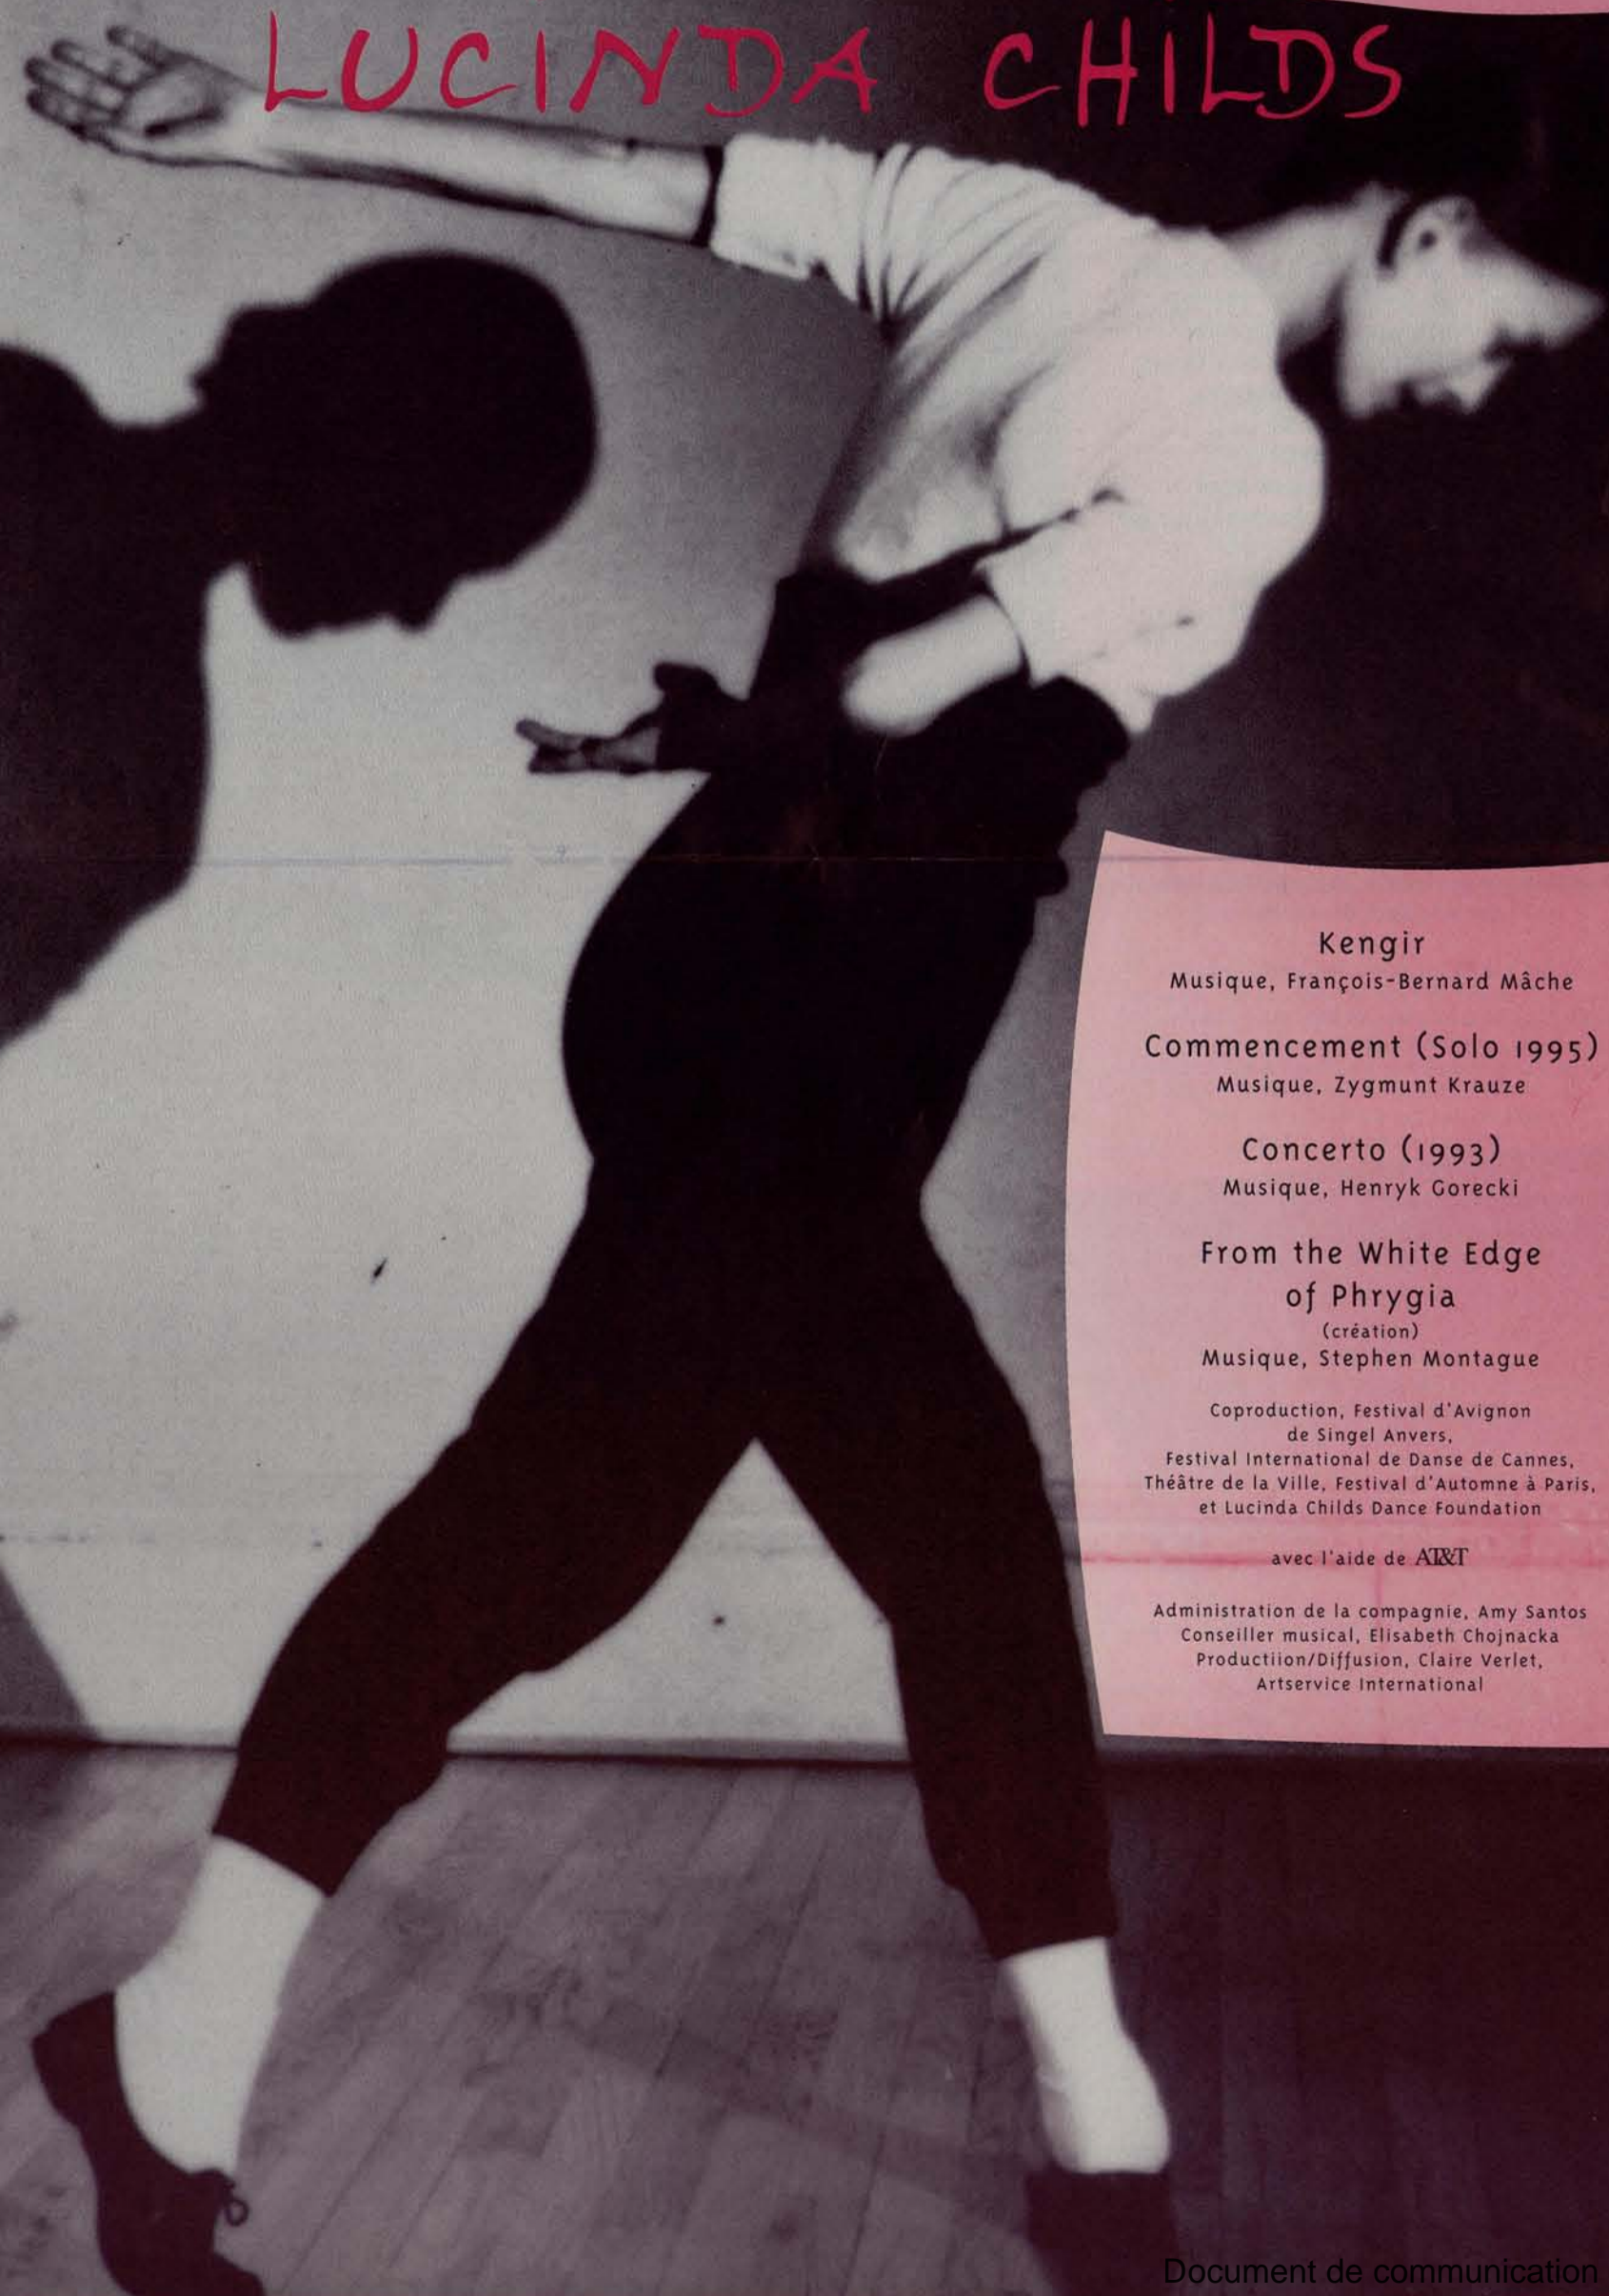 LUCINDA CHILDS
Kengir
Musique, François-Bernard Mâche
Commencement (Solo 1995)
Musique, Zygmunt Krauze
Concerto (1993)
Musique, Henryk Gorecki
From the White Edge
of Phrygia
(création)
Musique, Stephen Montague
Coproduction, Festival d'Avignon
de Singel Anvers,
Festival International de Danse de Cannes,
Théâtre de la Ville, Festival d'Automne à Paris,
et Lucinda Childs Dance Foundation
avec l'aide de AT&T
Administration de la compagnie, Amy Santos
Conseiller musical, Elisabeth Chojnacka
Productiion/Diffusion, Claire Verlet,
Artservice International
Document de communication